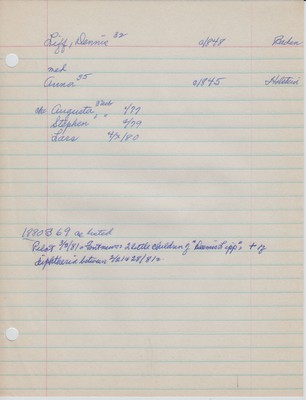 Liff, Dennis 32 c1848 Baden
med
Anna 35 c1845 Holstein
Augusta 3 2/77
Stephen " 2/79
Lars 4/x/80
1880 B 69 as listed
Pilot 3/3/81 2 little children of "Dennis Lipp", + of
diphtheria between 2/21 + 28/81